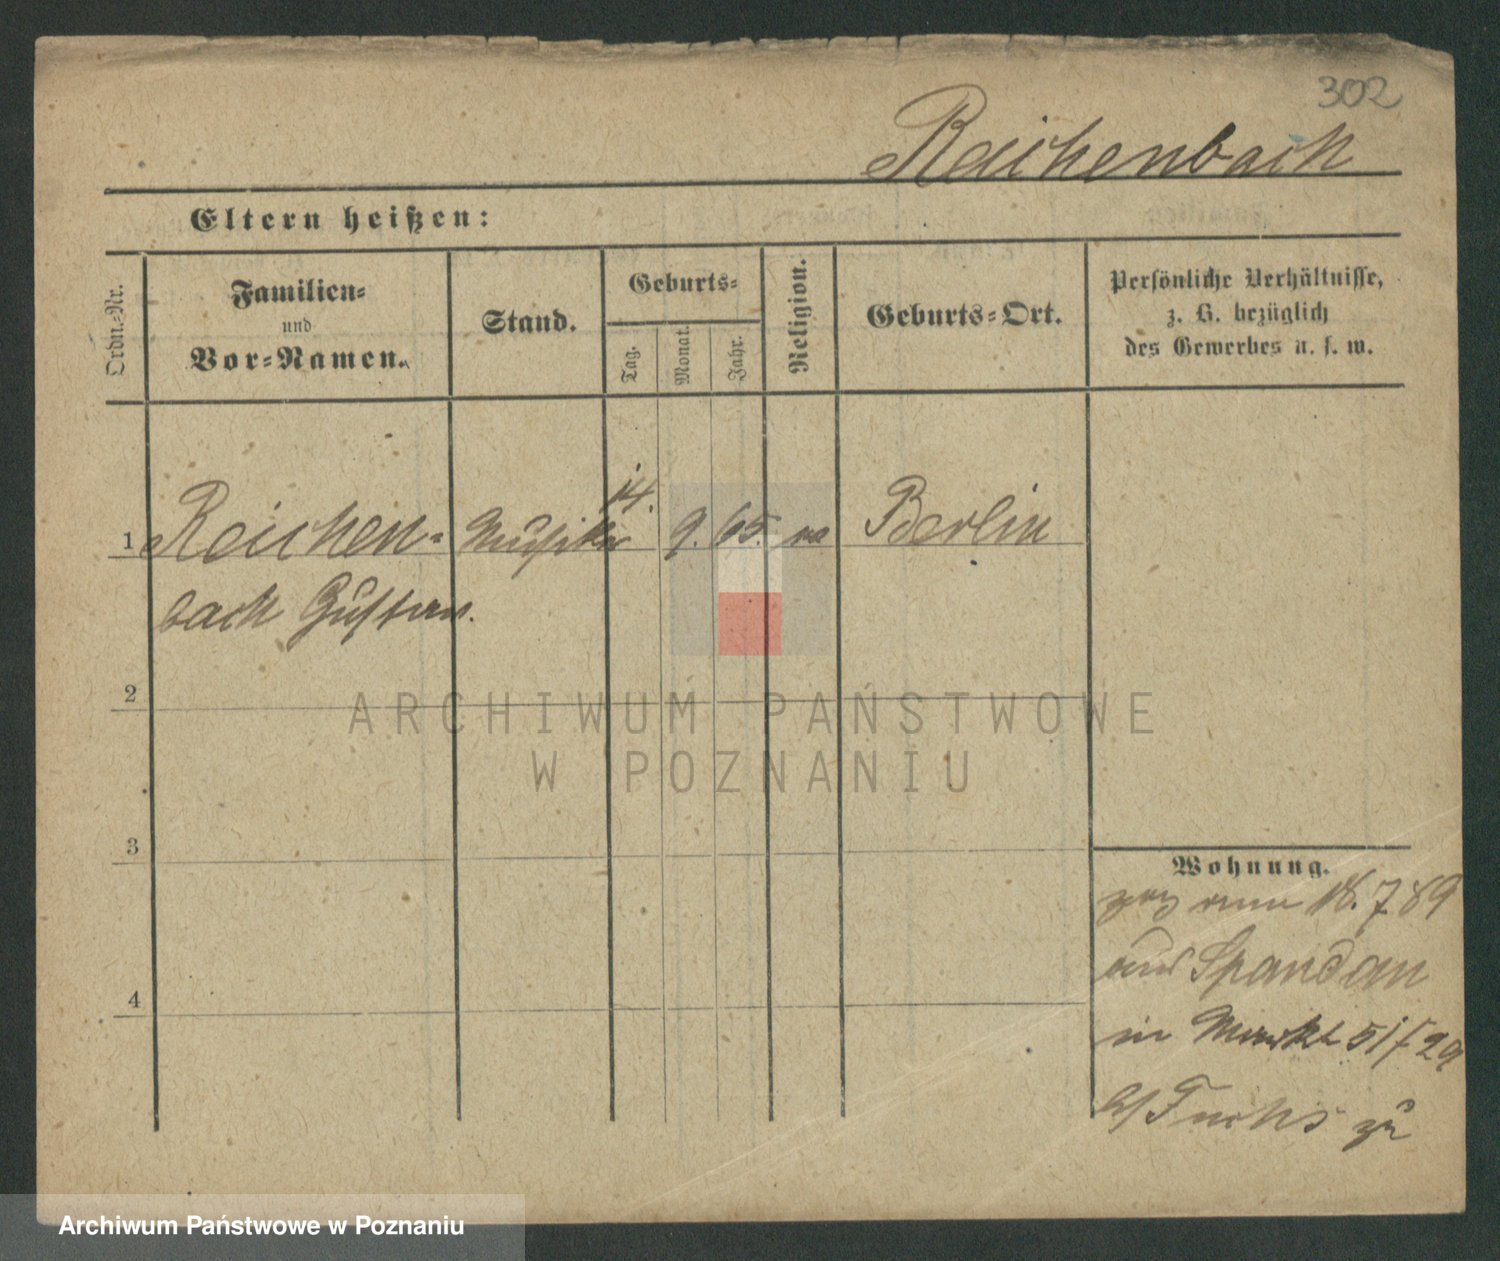 302
Reichenbach
Eltern heißen:
Ordn.-Nr.
Familien-
und
Vor-Namen.
Stand.
Geburts-
Tag.
Monat.
Jahr.
Religion.
Geburts-Ort.
Persönliche Verhältnisse,
z. B. bezüglich
des Gewerbes u. s. w.
1 Reichen- Musiker 14. 9. 65. Berlin
bach Gustav.
2
3
4
Wohnung.
zog am 18. 7 89
aus Spandau
in Markt 51/
b/ Fuchs zu
ARCHIWUM PAŃSTWOWE
W POZNANIU
Archiwum Państwowe w Poznaniu